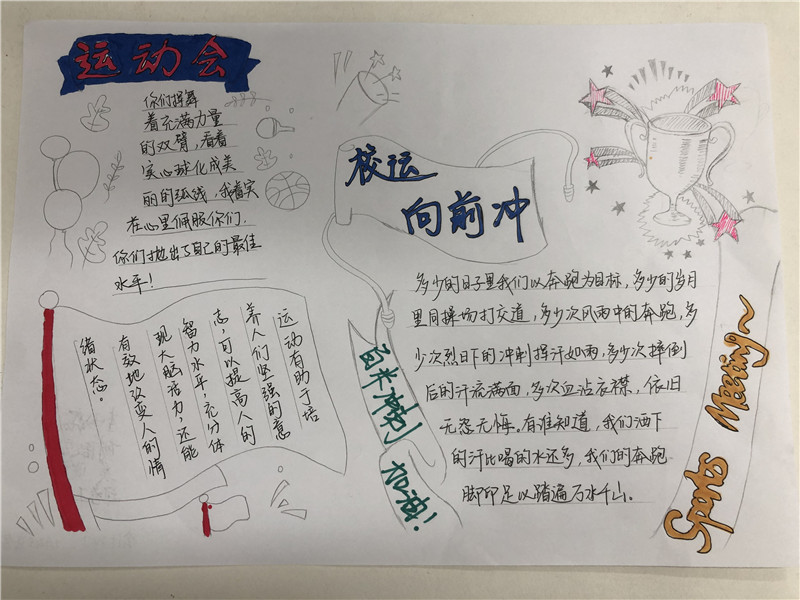 运动会
你们挥舞
着充满力量
的双臂，看着
实心球化成美
丽的弧线，我着实
在心里佩服你们．
你们抛出了自己的最佳
水平！
校运
向前冲
多少的日子里我们以奔跑为目标，多少的岁月
里同操场打交道，多少次风雨中的奔跑，多
少次烈日下的冲刺挥汗如雨，多少次摔倒
后的汗流满面，多次血沾衣襟，依旧
无怨无悔。有谁知道，我们洒下
的汗比喝的水还多，我们的奔跑
脚印足以踏遍万水千山。
运动有助于培
养人们坚强的意
志，可以提高人的
智力水平，充分体
现大脑活力，还能
有效地改变人的情
绪状态。
百米冲刺 加油！
Sports Meeting~